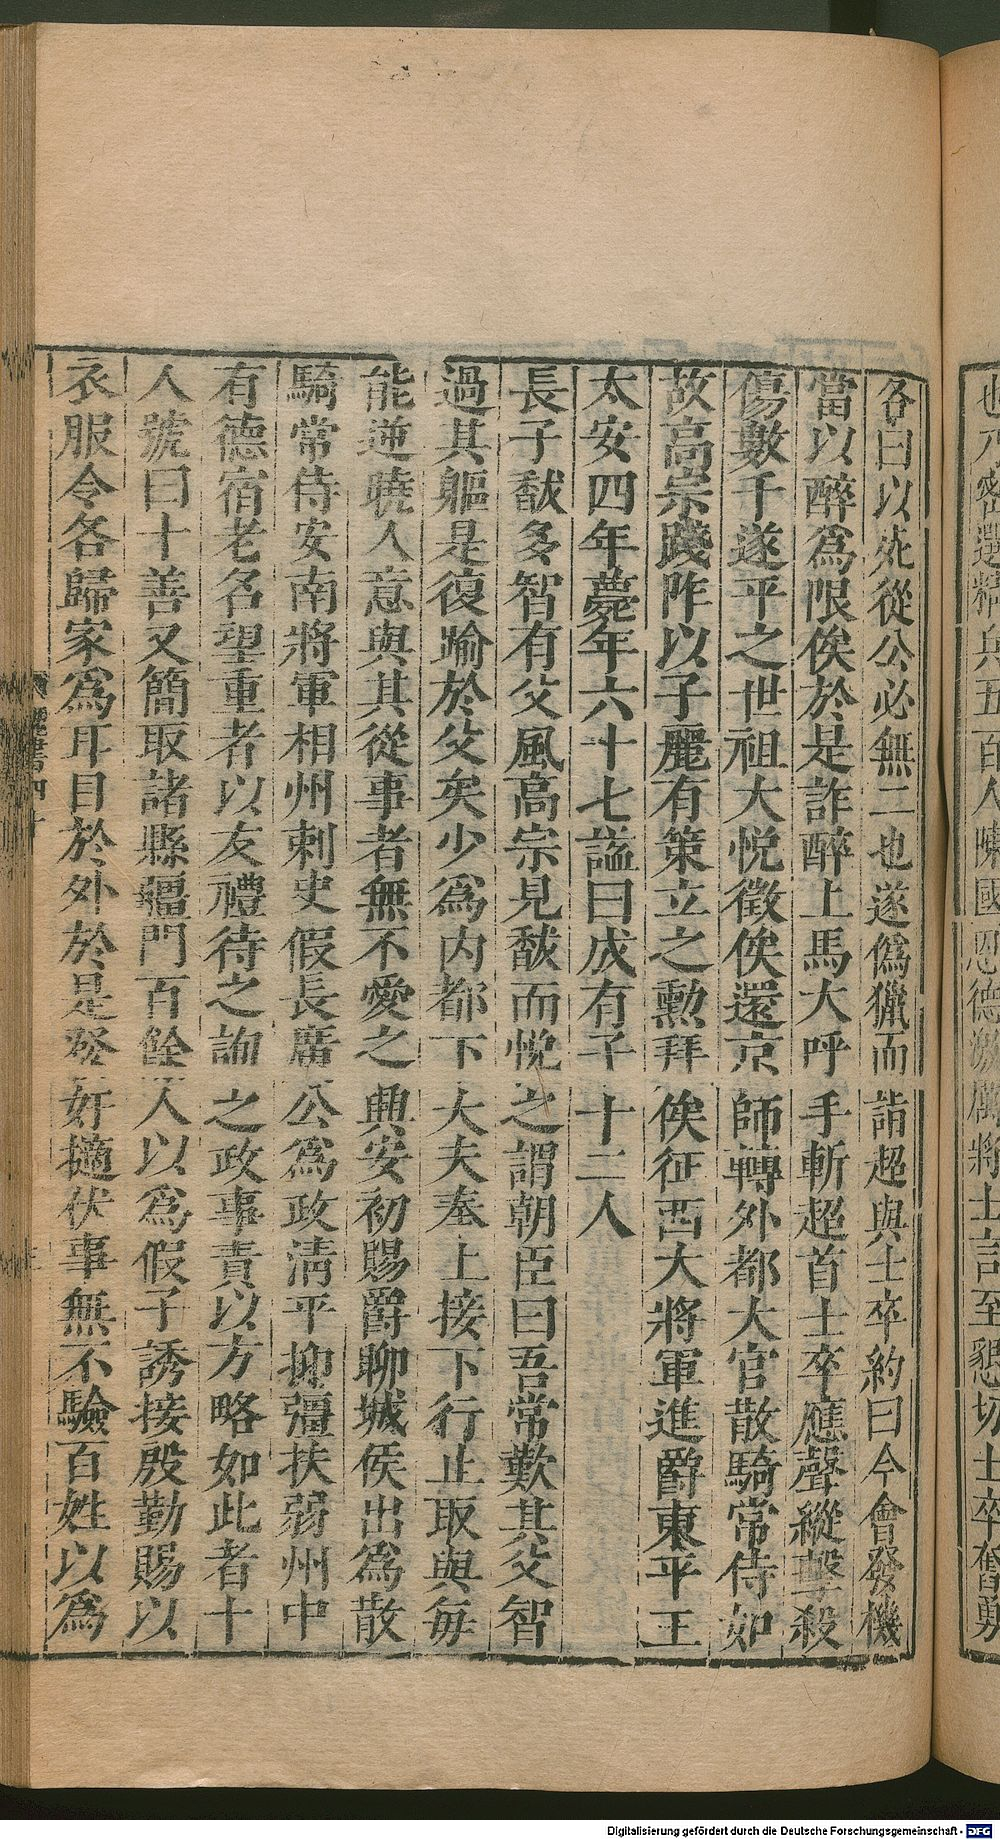 也乃密選精兵五百人陳國恩德激厲將士言至懇切士卒奮勇
各曰以死從公必無二也遂僞獵而詣超與士卒約曰今會發機
當以醉爲限俟於是詐醉上馬大呼手斬超首士卒應聲縱擊殺
傷數千遂平之世祖大悅徵俟還京師轉外都大官散騎常侍如
故高宗踐阼以子麗有策立之勳拜俟征西大將軍進爵東平王
太安四年薨年六十七謚曰成有子十二人
長子馛多智有父風高宗見馛而悅之謂朝臣曰吾常歎其父智
過其軀是復踰於父矣少爲內都下大夫奉上接下行止取與每
能逆曉人意與其從事者無不愛之興安初賜爵聊城侯出爲散
騎常侍安南將軍相州刺史假長廣公爲政清平抑彊扶弱州中
有德宿老名望重者以友禮待之詢之政事責以方略如此者十
人號曰十善又簡取諸縣彊門百餘人以爲假子誘接殷勤賜以
衣服令各歸家爲耳目於外於是發奸擿伏事無不驗百姓以爲
魏書四十
Digitalisierung gefördert durch die Deutsche Forschungsgemeinschaft - DFG